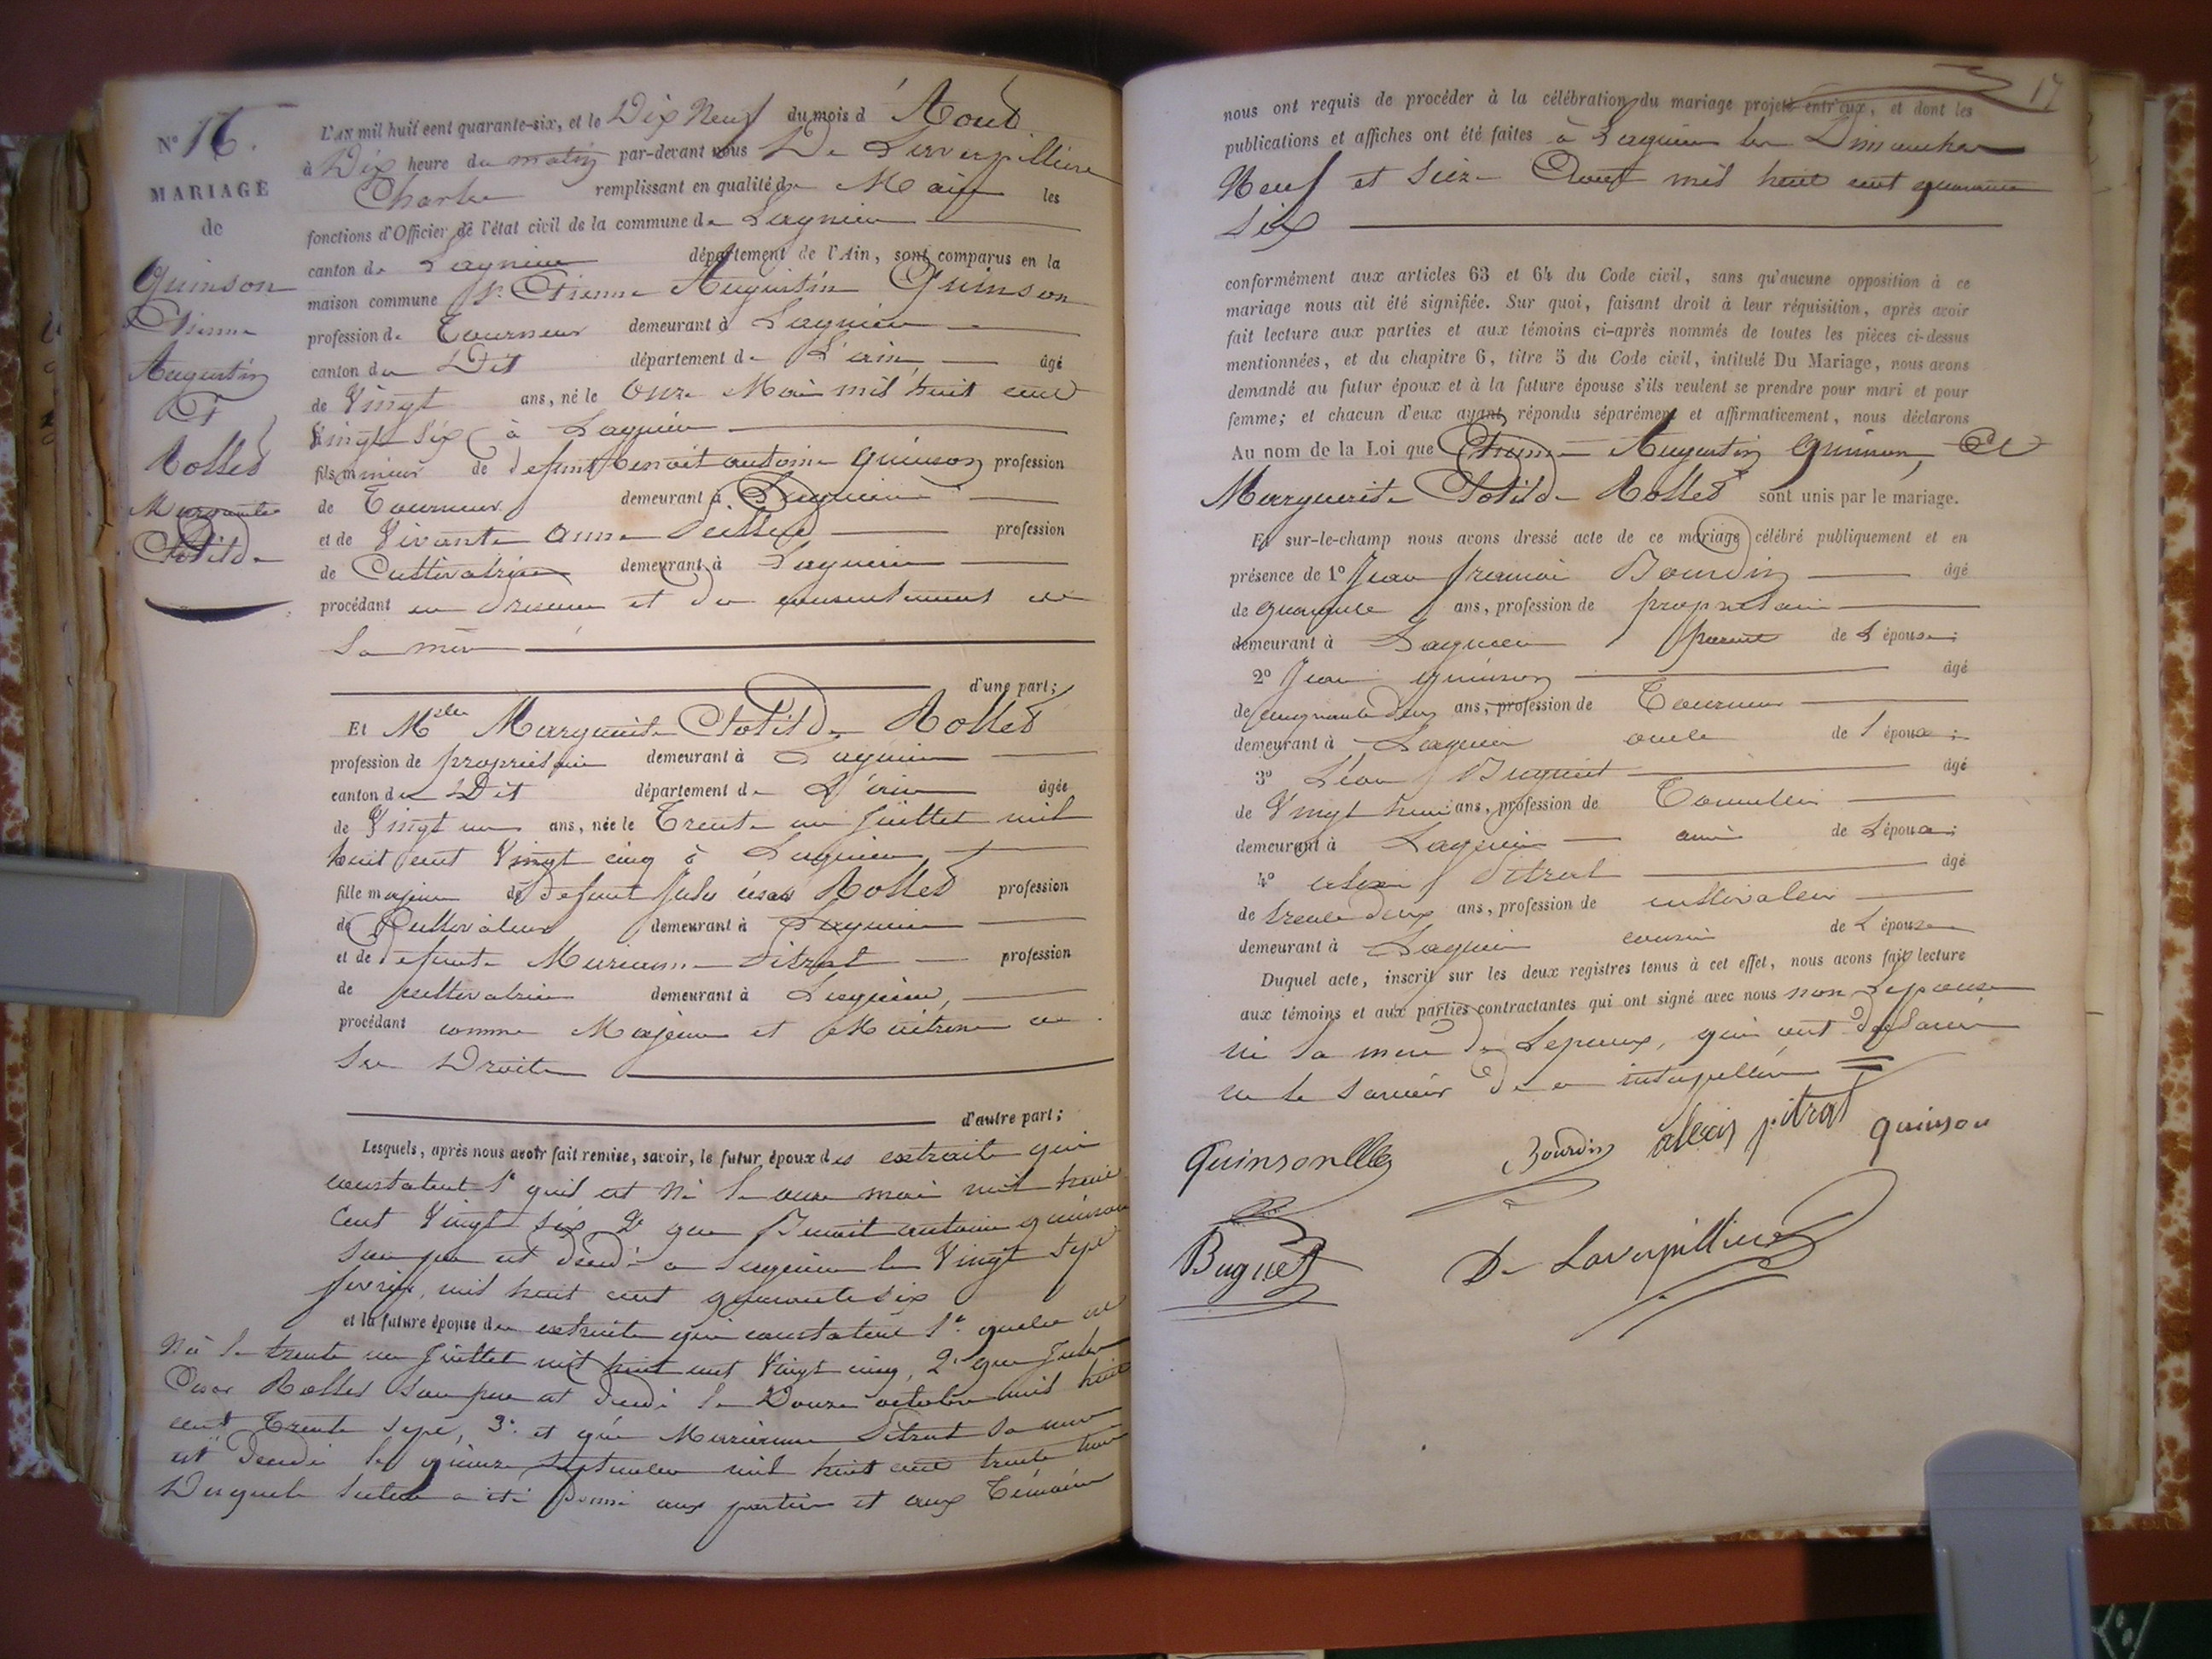 N° 16.
MARIAGE
de
Quinson
Etienne
Augustin
Et
Rollet
Marguerite
Clotilde
L'AN mil huit cent quarante-six, et le Dix Neuf du mois d'Aout
à Dix heure du matin par-devant nous De Laverpilliere
Charles remplissant en qualité de Maire les
fonctions d'Officier de l'état civil de la commune de Lagnieu
canton de Lagnieu département de l'Ain, sont comparus en la
maison commune Sr. Etienne Augustin Quinson
profession de Tourneur demeurant à Lagnieu
canton du Dit département de L'ain âgé
de Vingt ans, né le onze Mai mil huit cent
Vingt Six à Lagnieu
fils mineur de defunt Benoit antoine Quinson profession
de Tourneur demeurant à Lagnieu
et de Vivante anne profession
de Cultivatrice demeurant à Lagnieu
procédant en presence et du consentement de
Sa mère
d'une part;
Et Mlle Marguerite Clotilde Rollet
profession de propriétaire demeurant à Lagnieu
canton du Dit département de L'ain âgée
de Vingt un ans, née le Trente un Juillet mil
huit cent Vingt cinq à Lagnieu
fille majeure de defunt Jules César Rollet profession
de Cultivateur demeurant à Lagnieu
et de defunte Marianne Pitrat profession
de cultivatrice demeurant à Lagnieu,
procédant comme Majeure et Maitresse de
Ses Droits
d'autre part;
Lesquels, après nous avoir fait remise, savoir, le futur époux des extraits qui
constatent 1° quil est Né le onze mai mil huit
Cent Vingt Six 2° que Benoit antoine quinson
Son père est décédé a Lagnieu le Vingt Sept
fevrier, mil huit cent quarante six
et la future épouse des extraits qui constatent 1° quelle est
Née le trente un Juillet mil huit cent Vingt cinq, 2° que Jules
Cesar Rollet Son père est décédé le Douze octobre mil huit
cent Trente Sept, 3° et que Marianne Pitrat Sa mère
est Décédée le quinze Septembre mil huit cent trente
Desquels lecture a été donné aux parties et aux Témoins
17
nous ont requis de procéder à la célébration du mariage projeté entr'eux, et dont les
publications et affiches ont été faites à Lagnieu les Dimanches
Neuf et Seize Aout mil huit cent quarante
Six
conformément aux articles 63 et 64 du Code civil, sans qu'aucune opposition à ce
mariage nous ait été signifiée. Sur quoi, faisant droit à leur réquisition, après avoir
fait lecture aux parties et aux témoins ci-après nommés de toutes les pièces ci-dessus
mentionnées, et du chapitre 6, titre 5 du Code civil, intitulé Du Mariage, nous avons
demandé au futur époux et à la future épouse s'ils veulent se prendre pour mari et pour
femme; et chacun d'eux ayant répondu séparément et affirmativement, nous déclarons
Au nom de la Loi que Etienne Augustin Quinson, Et
Marguerite Clotilde Rollet sont unis par le mariage.
Et sur-le-champ nous avons dressé acte de ce mariage célébré publiquement et en
présence de 1° Jean françois Bourdin âgé
de quarante ans, profession de propriétaire
demeurant à Lagnieu parent de L'épouse;
2° Jean quinson âgé
de cinquante deux ans, profession de Tourneur
demeurant à Lagnieu oncle de l'époux;
3° Léon Buguet âgé
de Vingt huit ans, profession de Tonnelier
demeurant à Lagnieu ami de L'époux;
4° alexis Pitrat âgé
de trente deux ans, profession de cultivateur
demeurant à Lagnieu cousin de L'épouse
Duquel acte, inscrit sur les deux registres tenus à cet effet, nous avons fait lecture
aux témoins et aux parties contractantes qui ont signé avec nous non Lepouse
ni la mère de Lepoux, qui ont déclaré
ne le savoir de ce interpellées
Quinson Bourdin alexis pitrat quinson
Buguet De Laverpilliere